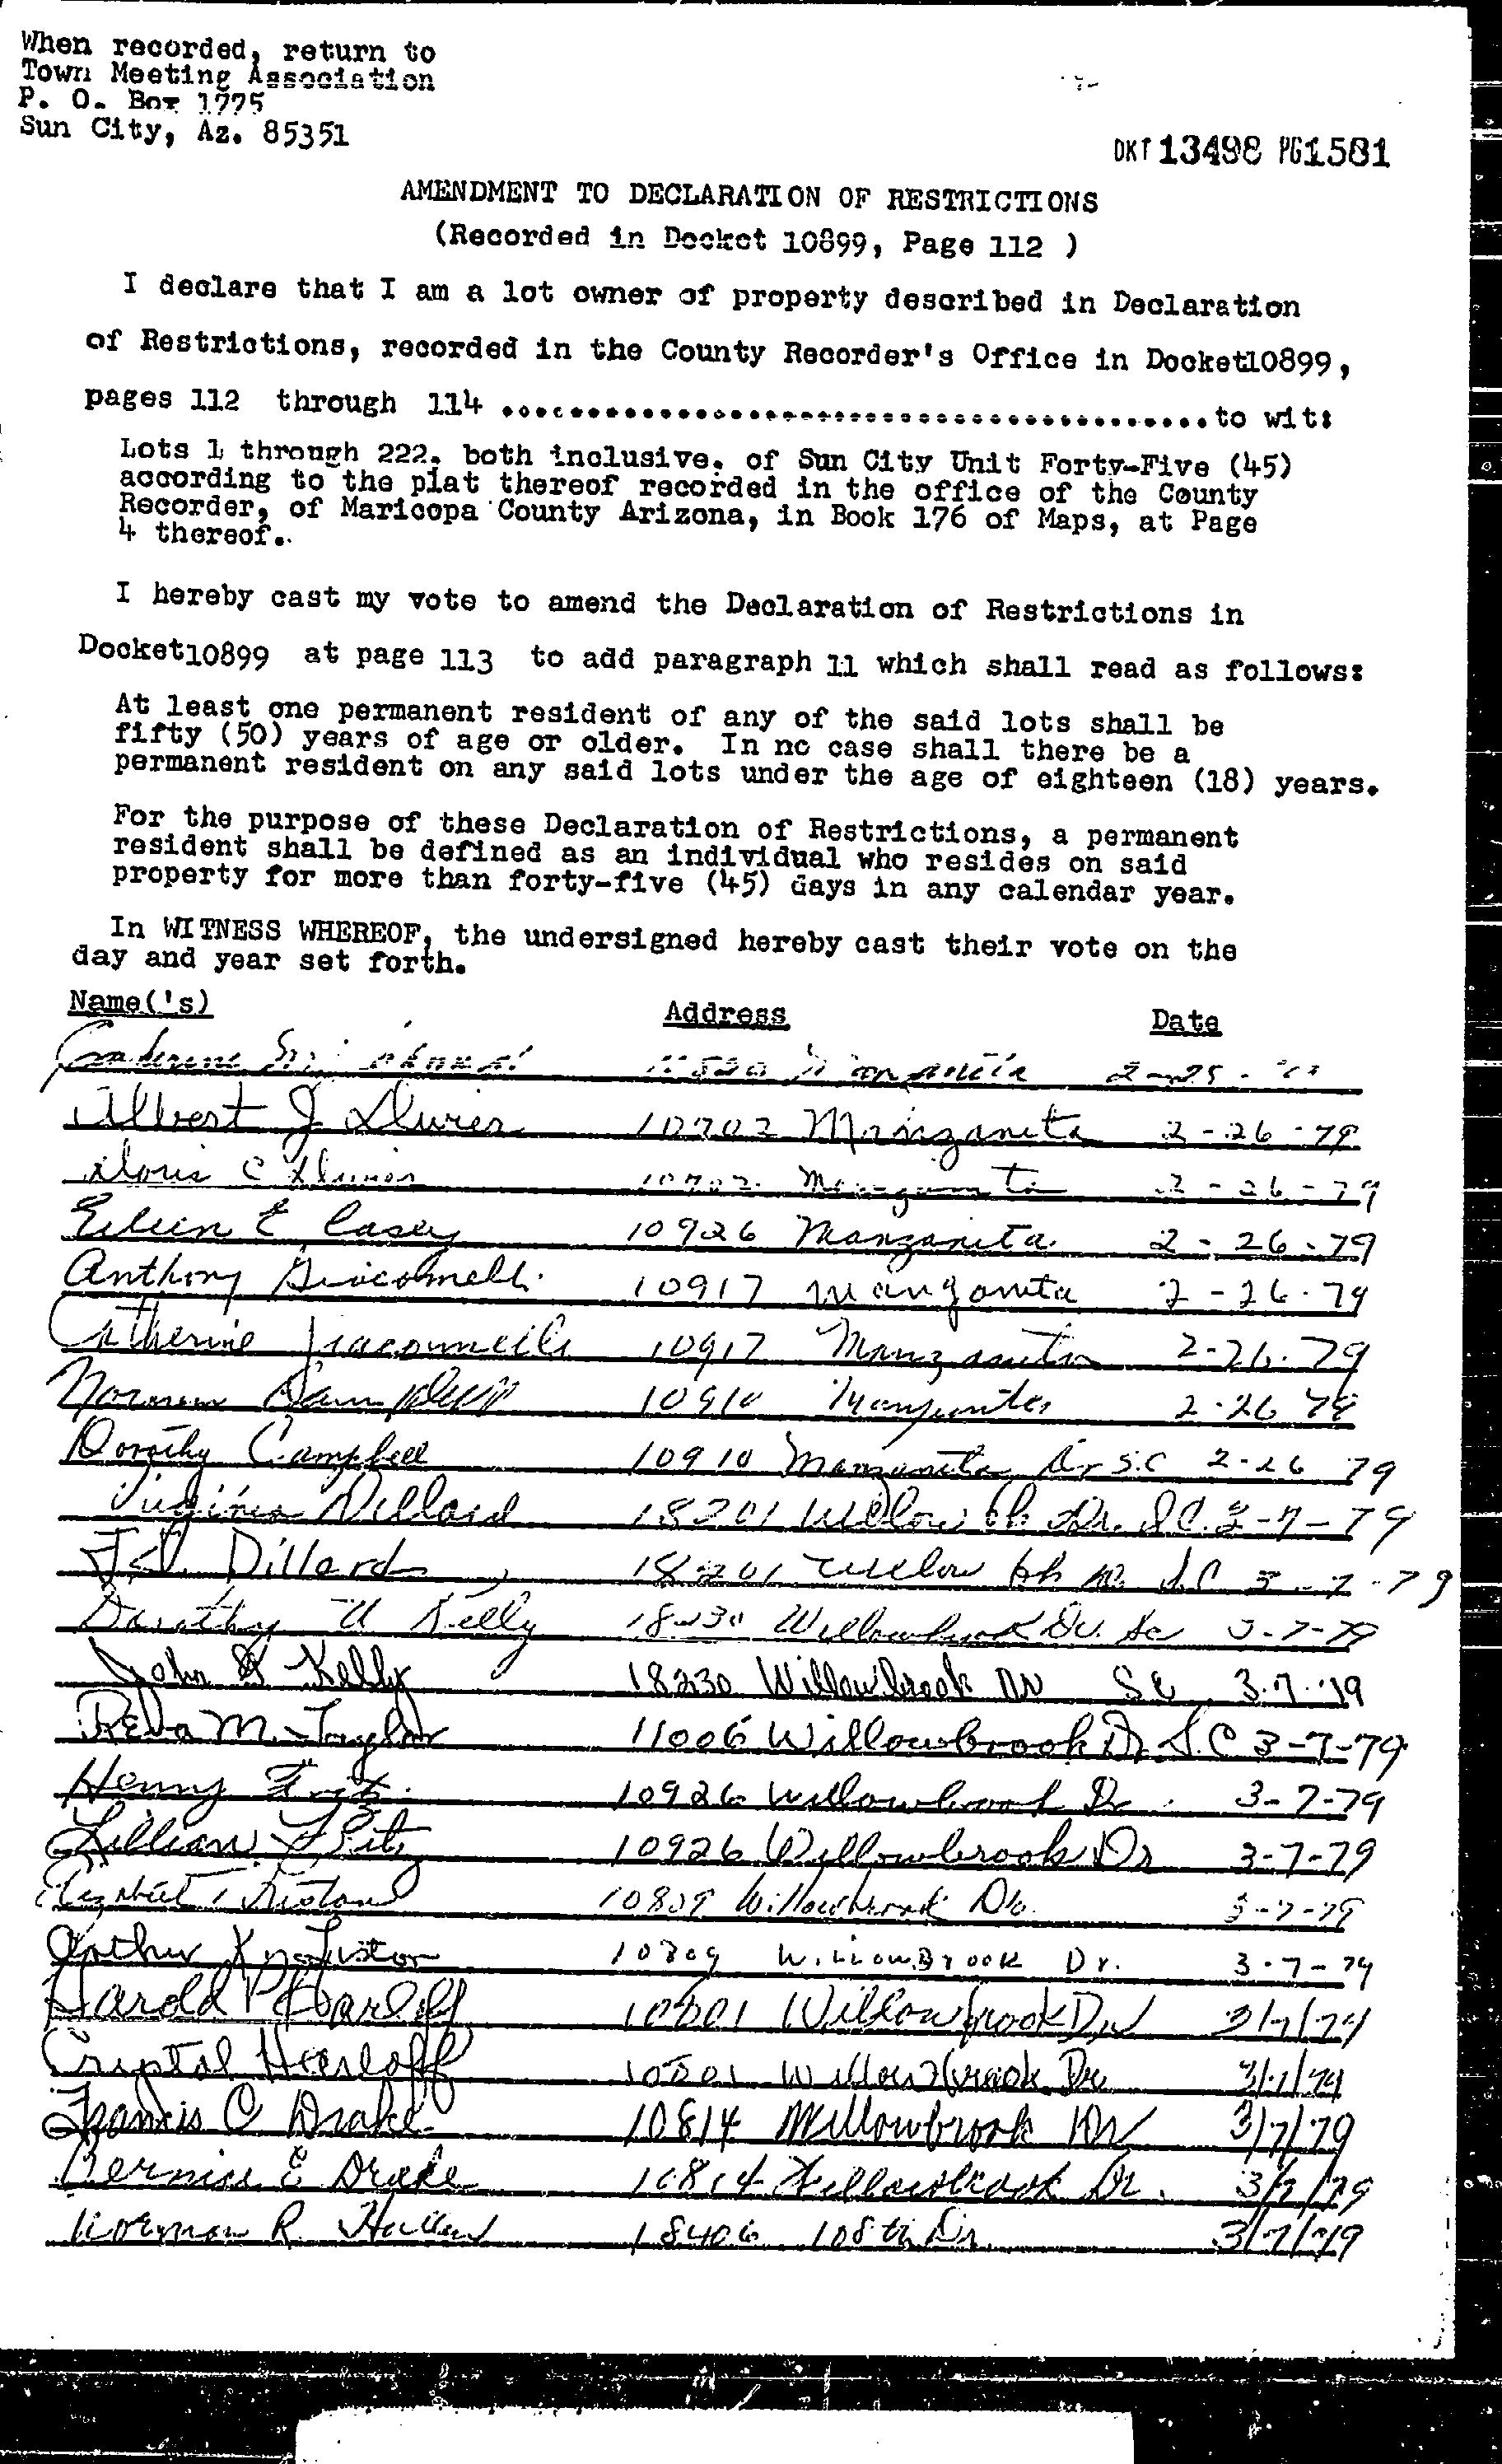 When recorded, return to
Town Meeting Association
P. O. Box 1775
Sun City, Az. 85351
DKT 13498 PG 1581
AMENDMENT TO DECLARATION OF RESTRICTIONS
(Recorded in Docket 10899, Page 112 )
I declare that I am a lot owner of property described in Declaration
of Restrictions, recorded in the County Recorder's Office in Docket10899,
pages 112 through 114 ..................................................to wit:
Lots 1 through 222, both inclusive, of Sun City Unit Forty-Five (45)
according to the plat thereof recorded in the office of the County
Recorder, of Maricopa County Arizona, in Book 176 of Maps, at Page
4 thereof.
I hereby cast my vote to amend the Declaration of Restrictions in
Docket10899 at page 113 to add paragraph 11 which shall read as follows:
At least one permanent resident of any of the said lots shall be
fifty (50) years of age or older. In no case shall there be a
permanent resident on any said lots under the age of eighteen (18) years.
For the purpose of these Declaration of Restrictions, a permanent
resident shall be defined as an individual who resides on said
property for more than forty-five (45) days in any calendar year.
In WITNESS WHEREOF, the undersigned hereby cast their vote on the
day and year set forth.
Name('s) Address Date
Manzanita
Albert J 10702 Manzanita 2-26-79
Doris C 10702 Manzanita 2-26-79
Eileen E Casey 10926 Manzanita 2-26-79
Anthony Giacomelli 10917 Manzanita 2-26-79
Catherine Giacomelli 10917 Manzanita 2-26-79
Norman Campbell 10910 Manzanita 2-26 79
Dorothy Campbell 10910 Manzanita Dr S.C 2-26 79
Virginia Dillard 18201 Willow bk Dr. S.C. 3-7-79
Dillard 18201 Willow bk Dr. S.C 3-7-79
Dorothy U Kelly 18230 Willowbrook Dr. Sc 3-7-79
John Kelly 18230 Willowbrook Dr S C 3-7-79
Reva M. Taylor 11006 Willowbrook Dr. S.C 3-7-79
Henry 10926 Willowbrook Dr. 3-7-79
Lillian 10926 Willowbrook Dr 3-7-79
Willowbrook Dr. 3-7-79
Arthur 10809 WillowBrook Dr. 3-7-79
Harold P Harloff 10801 Willowbrook Dr 3/7/79
Crystal Harloff 10801 Willowbrook Dr 3/7/79
Francis C Drake 10814 Willowbrook Dr 3/7/79
Bernice E Drake 10814 Willowbrook Dr. 3/7/79
Norman R. 18406 108th Dr. 3/7/79